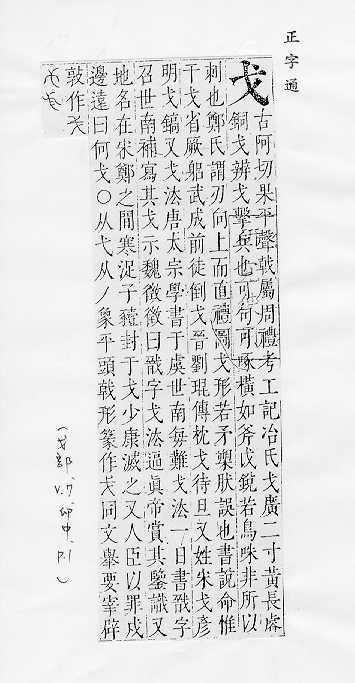 正字通
戈
古阿切果平聲戟屬周禮考工記冶氏戈廣二寸黃長睿
銅戈辨戈擊兵也可句可啄橫如斧伐銳若鳥咮非所以
刺也鄭氏謂刃向上而直禮圖戈形若矛槊狀誤也書說命惟
干戈省厥躬武成前徒倒戈晉劉琨傳枕戈待旦又姓宋戈彥
明戈鎬又戈法唐太宗學書于虞世南每難戈法一日書戩字
召世南補寫其戈示魏徵徵曰戩字戈法逼眞帝賞其鑒識又
地名在宋鄭之間寒浞子豷封于戈少康滅之又人臣以罪戍
邊遠曰何戈○从弋从丿象平頭戟形篆作戈同文舉要宰辟
敦作
(戈部, v.7, 卯中, p.1)